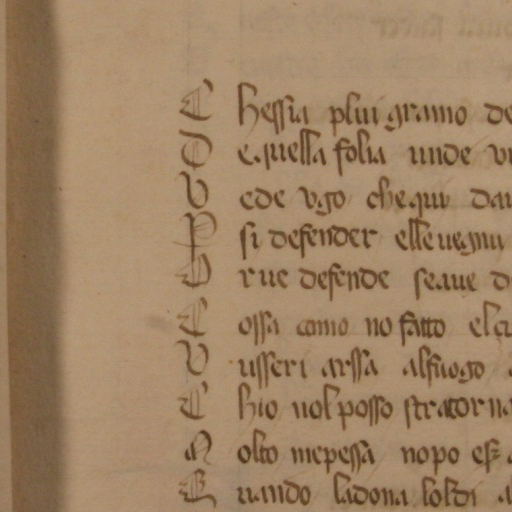 C hessia plui gramo de
D equella folia unde vi
V ede vgo chequi dau
P si defender elle uegnu
D rue defende seaue d
C ossa como no fatto elcu
V usseri arssa alfuogo
C hio uol posso strator na
M olto mepessa nopo esser
G uando ladona loldi